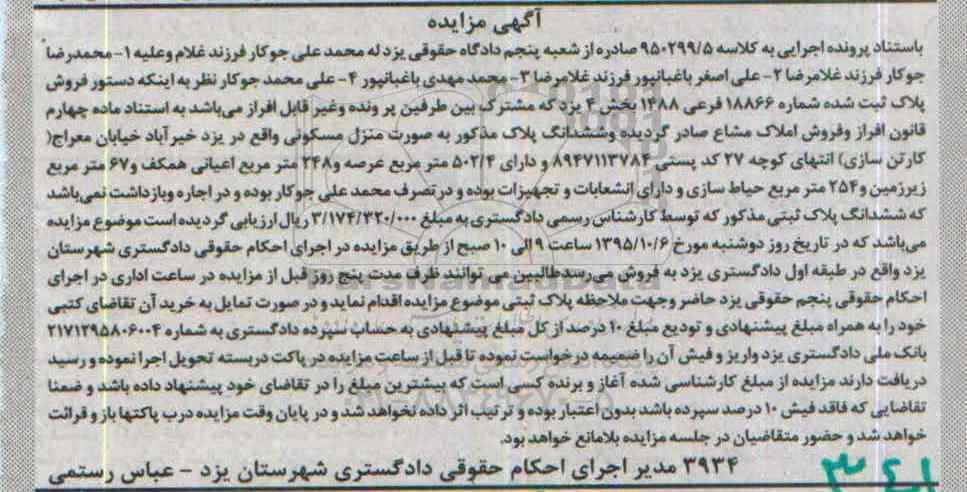 آگهی مزایده
باستناد پرونده اجرایی به کلاسه ۹۵۰۲۹۹/۵ صادره از شعبه پنجم دادگاه حقوقی یزد له محمد علی جوکار فرزند غلام وعلیه ۱- محمدرضا
جوکار فرزند غلامرضا ۲- علی اصغر باغبانپور فرزند غلامرضا ۳- محمد مهدی باغبانپور ۴- علی محمد جوکار نظر به اینکه دستور فروش
پلاک ثبت شده شماره ۱۸۸۶۶ فرعی ۱۴۸۸ بخش ۴ یزد که مشترک بین طرفین پر ونده وغیر قابل افراز می‌باشد به استناد ماده چهارم
قانون افراز وفروش املاک مشاع صادر گردیده وششدانگ پلاک مذکور به صورت منزل مسکونی واقع در یزد خیرآباد خیابان معراج(
کارتن سازی) انتهای کوچه ۲۷ کد پستی ۸۹۴۷۱۱۳۷۸۴ و دارای ۵۰۲/۴ متر مربع عرصه و۲۴۸ متر مربع اعیانی همکف و۶۷ متر مربع
زیرزمین و۲۵۴ متر مربع حیاط سازی و دارای انشعابات و تجهیزات بوده و در تصرف محمد علی جوکار بوده و در اجاره وبازداشت نمی‌باشد
که ششدانگ پلاک ثبتی مذکور که توسط کارشناس رسمی دادگستری به مبلغ ۳/۱۷۴/۳۲۰/۰۰۰ ریال ارزیابی گردیده است موضوع مزایده
می‌باشد که در تاریخ روز دوشنبه مورخ ۱۳۹۵/۱۰/۶ ساعت ۹ الی ۱۰ صبح از طریق مزایده در اجرای احکام حقوقی دادگستری شهرستان
یزد واقع در طبقه اول دادگستری یزد به فروش می‌رسد طالبین می توانند ظرف مدت پنج روز قبل از مزایده در ساعت اداری در اجرای
احکام حقوقی پنجم حقوقی یزد حاضر وجهت ملاحظه پلاک ثبتی موضوع مزایده اقدام نماید و در صورت تمایل به خرید آن تقاضای کتبی
خود را به همراه مبلغ پیشنهادی و تودیع مبلغ ۱۰ درصد از کل مبلغ پیشنهادی به حساب سپرده دادگستری به شماره ۲۱۷۱۲۹۵۸۰۶۰۰۴
بانک ملی دادگستری یزد واریز و فیش آن را ضمیمه درخواست نموده تا قبل از ساعت مزایده در پاکت دربسته تحویل اجرا نموده و رسید
دریافت دارند مزایده از مبلغ کارشناسی شده آغاز و برنده کسی است که بیشترین مبلغ را در تقاضای خود پیشنهاد داده باشد و ضمنا
تقاضایی که فاقد فیش ۱۰ درصد سپرده باشد بدون اعتبار بوده و ترتیب اثر داده نخواهد شد و در پایان وقت مزایده درب پاکتها باز و قرائت
خواهد شد و حضور متقاضیان در جلسه مزایده بلامانع خواهد بود.
۳۹۳۴ مدیر اجرای احکام حقوقی دادگستری شهرستان یزد - عباس رستمی